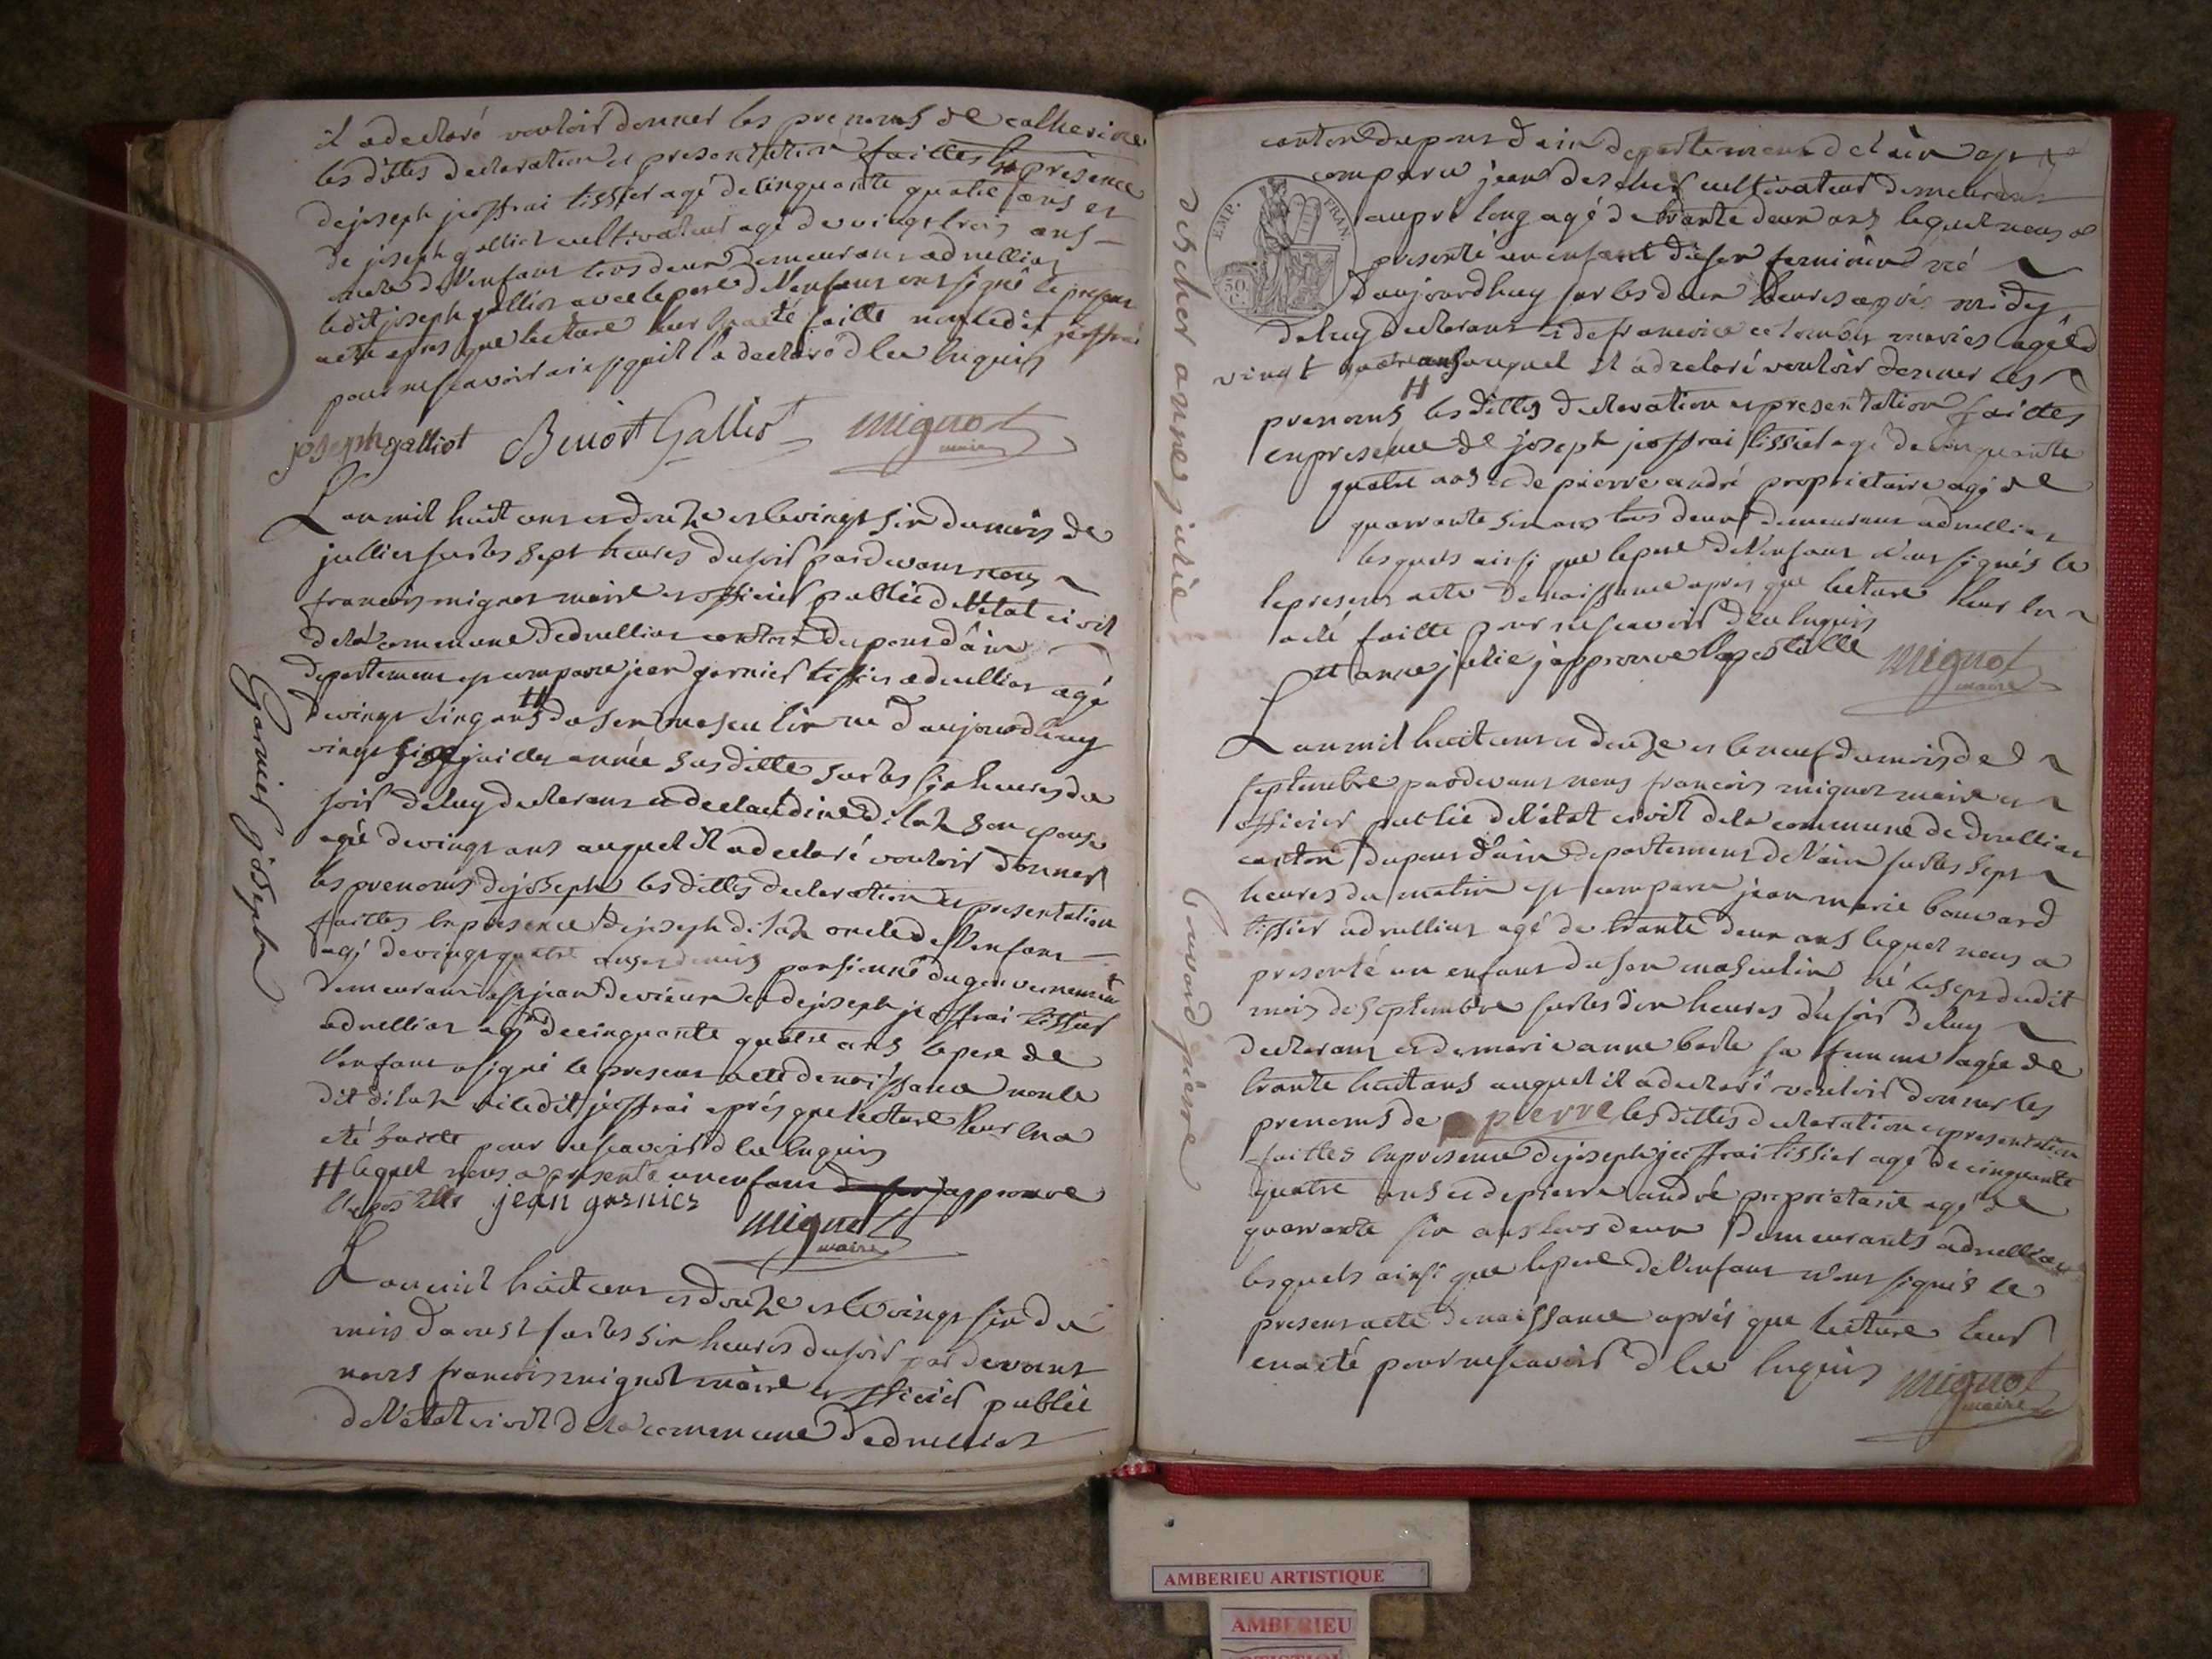 il a declaré vouloir donner les prenoms de catherine
les dittes declaration et presentation faittes en presence
de joseph jeoffrai tissier agé de cinquante quatre ans et
de joseph galliot cultivateur agé de vingt trois ans
de l'enfant tous deux demeurant a druilliat
ledit joseph galliot avec le pere de l'enfant ont signé le present
acte apres que lecture leur a eté faitte non ledit jeoffrai
pour ne scavoir ainsi qu'il l'a declaré de ce enquis
joseph galliot Benoît Galliot mignot
maire
L'an mil huit cent et douze et le vingt six du mois de
juillier sur les sept heures du soir pardevant nous
francois mignot maire et officier public de l'etat civil
de la commune de druilliat canton du pont d'ain
departement est comparu jean garnier tissier a druilliat agé
de vingt cinq ans # du sexe masculin né d'aujourdhuy
vingt six juillet année susditte sur les six heures du
soir de luy declarant et de claudine dilaz son epouse
agée de vingt ans auquel il a declaré vouloir donner
les prenoms de joseph les dittes declaration et presentation
faittes en presence de joseph dilaz oncle de l'enfant
agé de vingt quatre ans et demis pensionné du gouvernement
demeurant a st jean de vieux et de joseph jeoffrai tissier
a druilliat agé de cinquante quatre ans le pere de
l'enfant a signé le present acte de naissance non le
dit dilaz ni ledit jeoffrai après que lecture leur en a
eté faitte pour ne scavoir de ce enquis
# lequel nous a presenté un enfant approuve
l'apostille jean garnier mignot
maire
Garnier joseph
L'an mil huit cent et douze et le vingt six du
mois d'aoust sur les six heures du soir par devant
nous francois mignot maire et officier public
de l'etat civil de la commune de druilliat
canton du pont d'ain departement de l'ain est
comparu jean descher cultivateur demeurant
au pré long agé de trante deux ans lequel nous a
presenté un enfant du sexe feminin né
d'aujourdhuy sur les deux heures après midy
de luy declarant et de francoise colomber mariés agée de
vingt quatre ans auquel il a declaré vouloir donner les
prenoms # les dittes declaration et presentation faittes
en presence de joseph jeoffrai tissier agé de cinquante
quatre ans et de pierre andré proprietaire agé de
quarrante six ans tous deux demeurant a druilliat
lesquels ainsi que le pere de l'enfant n'ont signés le
le present acte de naissance apres que lecture leur en
a eté faitte pour ne scavoir de ce enquis
# anne julie j'approuve l'apostille mignot
maire
EMP. FRAN.
50
descher anne julie
L'an mil huit cent et douze et le neuf du mois de
septembre pardevant nous francois mignot maire et
officier public de l'état civil de la commune de druilliat
canton du pont d'ain departement de l'ain sur les sept
heures du matin est comparu jean marie bouvard
tissier a druilliat agé de trante deux ans lequel nous a
presenté un enfant du sexe masculin né le sept dudit
mois de septembre sur les dix heures du soir de luy
declarant et de marie anne sa femme agée de
trante huit ans auquel il a declaré vouloir donner les
prenoms de pierre les dittes declaration et presentation
faittes en presence de joseph jeoffrai tissier agé de cinquante
quatre ans et de pierre andré proprietaire agé de
quarrante six ans tous deux demeurants a druilliat
lesquels ainsi que le pere de l'enfant n'ont signés le
present acte de naissance après que lecture leur
en a eté pour ne scavoir de ce enquis mignot
maire
bouvard pierre
AMBERIEU ARTISTIQUE
AMBERIEU